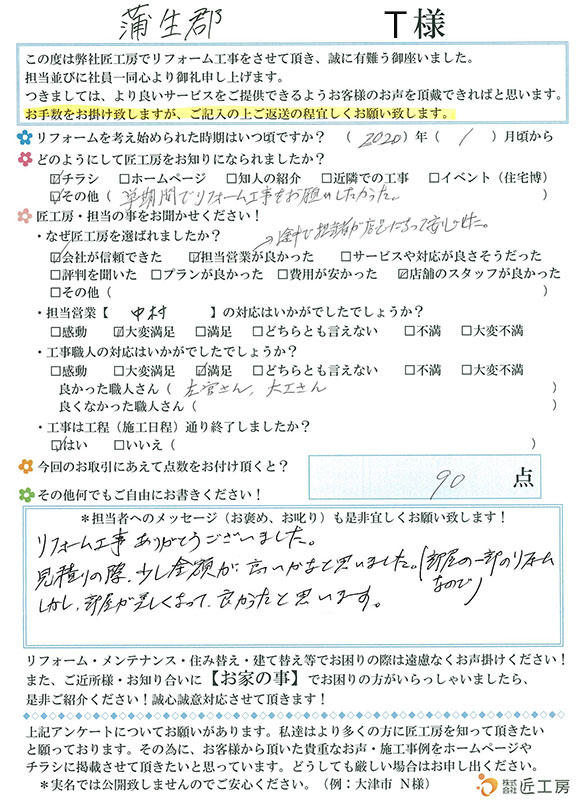 蒲生郡 T様
この度は弊社匠工房でリフォーム工事をさせて頂き、誠に有難う御座いました。
担当並びに社員一同心より御礼申し上げます。
つきましては、より良いサービスをご提供できるようお客様のお声を頂戴できればと思います。
お手数をお掛け致しますが、ご記入の上ご返送の程宜しくお願い致します。
リフォームを考え始められた時期はいつ頃ですか？ （ 2020 ）年（ 1 ）月頃から
どのようにして匠工房をお知りになられましたか？
☑チラシ □ホームページ □知人の紹介 □近隣での工事 □イベント（住宅博）
☑その他（ 学期間でリフォーム工事をお願いしたかった。 ）
匠工房・担当の事をお聞かせください！
・なぜ匠工房を選ばれましたか？
→途中で担当者が店長になって安心した。
☑会社が信頼できた ☑担当営業が良かった □サービスや対応が良さそうだった
□評判を聞いた □プランが良かった □費用が安かった ☑店舗のスタッフが良かった
□その他（ ）
・担当営業【 中村 】の対応はいかがでしたでしょうか？
□感動 ☑大変満足 □満足 □どちらとも言えない □不満 □大変不満
・工事職人の対応はいかがでしたでしょうか？
□感動 □大変満足 ☑満足 □どちらとも言えない □不満 □大変不満
良かった職人さん（ 左官さん、大工さん ）
良くなかった職人さん（ ）
・工事は工程（施工日程）通り終了しましたか？
☑はい □いいえ（ ）
今回のお取引にあえて点数をお付け頂くと？ 90 点
その他何でもご自由にお書きください！
＊担当者へのメッセージ（お褒め、お叱り）も是非宜しくお願い致します！
リフォーム工事ありがとうございました。
見積りの際、少し金額が高いかなと思いました。（部屋の一部のリフォーム
なので）
しかし、部屋が美しくなって、良かったと思います。
リフォーム・メンテナンス・住み替え・建て替え等でお困りの際は遠慮なくお声掛けください！
また、ご近所様・お知り合いに【お家の事】でお困りの方がいらっしゃいましたら、
是非ご紹介ください！誠心誠意対応させて頂きます！
上記アンケートについてお願いがあります。私達はより多くの方に匠工房を知って頂きたい
と願っております。その為に、お客様から頂いた貴重なお声・施工事例をホームページや
チラシに掲載させて頂きたいと思っています。どうしても厳しい場合はお申し出ください。
＊実名では公開致しませんのでご安心ください。（例：大津市 N様）
株式会社 匠工房